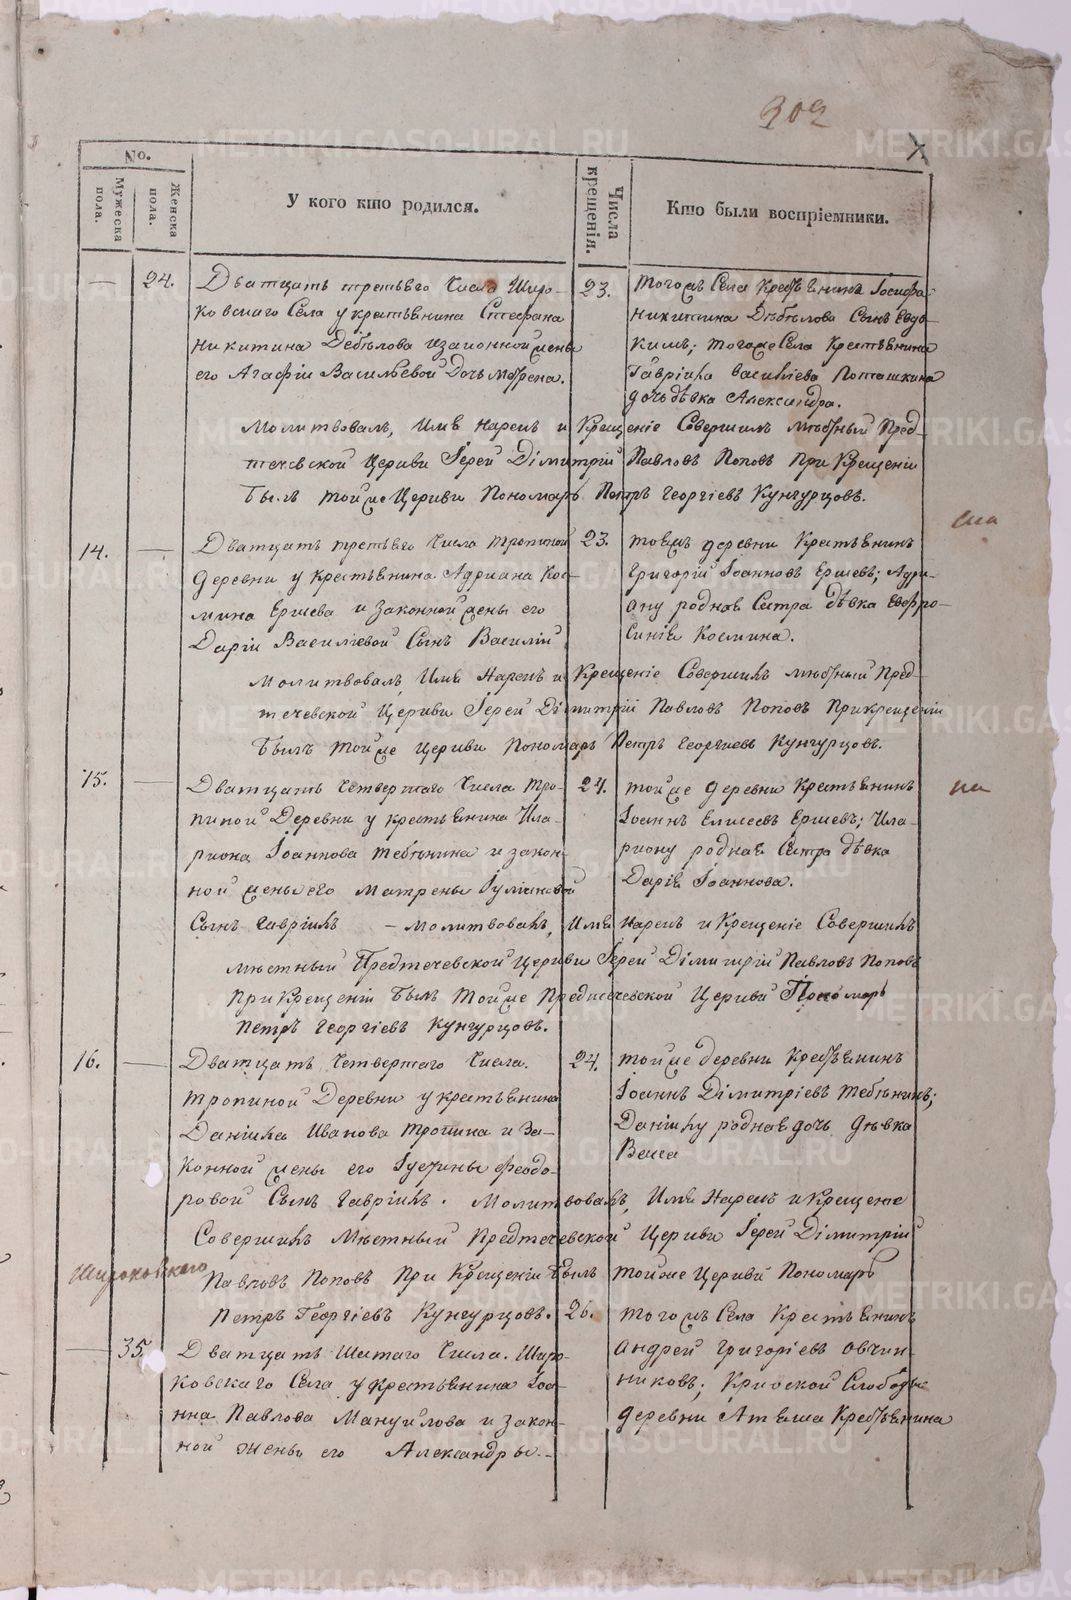 302
No.
Мужеска пола.
Женска пола.
У кого кто родился.
Числа крещенія.
Кто были воспріемники.
— 24.
Дватцать третьяго Числа Широ-
ковскаго Села у крестьянина Стефана
Никитина Дебѣлова и законной жены
его Агафіи Васильевой Дочь Матрена.
23.
Тогожъ Села Крестьянина Іосифа
Никитина Дѣбѣлова Сынъ Евдо-
кимъ; тогоже Села Крестьянина
Гавріила Васильева Поташкина
дочь дѣвка Александра.
Молитвовалъ, Имя нарекъ и Крещеніе Совершилъ мѣстный Пред-
течевской Церкви Іерей Димитрій Павловъ Поповъ При Крещеніи
былъ тойже Церкви Пономарь Петръ Георгіевъ Кунгурцовъ.
14. —
Дватцать третьяго Числа Тропиной
деревни у Крестьянина Адриана Кос-
мина Ершева и Законной жены его
Даріи Василіевой Сынъ Василій
23.
тоежъ деревни Крестьянинъ
Григорій Іоанновъ Ершевъ; Адри-
ану родная Сестра дѣвка Евфро-
синія Космина.
Молитвовалъ, Имя Нарекъ и Крещеніе Совершилъ мѣстный Пред-
течевской Церкви Іерей Димитрій Павловъ Поповъ При крещеніи
былъ тойже Церкви Пономарь Петръ Георгіевъ Кунгурцовъ.
15. —
Дватцать Четвертаго Числа Тро-
пиной Деревни у крестьянина Ила-
риона Іоаннова Тебѣнина и закон-
ной жены его Матрены Іуліановой
Сынъ Гавріилъ
24.
тойже деревни Крестьянинъ
Іоаннъ Елисеевъ Ершевъ; Ила-
риону родная Сестра дѣвка
Дарія Іоаннова.
— Молитвовалъ, Имя Нарекъ и Крещеніе Совершилъ
мѣстный Предтечевской Церкви Іерей Димитрій Павловъ Поповъ
При Крещеніи былъ Тойже Предтечевской Церкви Пономарь
Петръ Георгіевъ Кунгурцовъ.
16. —
Дватцать Четвертаго Числа.
Тропиной Деревни у крестьянина
Даніила Иванова Тропина и За-
конной жены его Іустины Феодо-
ровой Сынъ Гавріилъ.
24.
тойже деревни Крестьянинъ
Іоаннъ Димитріевъ Тебѣнинъ;
Даніилу родная дочь дѣвка
Васса
Молитвовалъ, Имя Нарекъ и Крещеніе
Совершилъ Мѣстный Предтечевской Церкви Іерей Димитрій
Павловъ Поповъ При Крещеніи былъ тойже Церкви Пономарь
Петръ Георгіевъ Кунгурцовъ.
Широковскаго
— 35
Дватцать Шестаго Числа. Широ-
ковскаго Села у крестьянина Іоа-
нна Павлова Мануйлова и закон-
ной жены его Александры
26.
тогожъ Села Крестьянинъ
Андрей Григоріевъ Овчин-
никовъ; Слободы
деревни Атяша Крестьянина